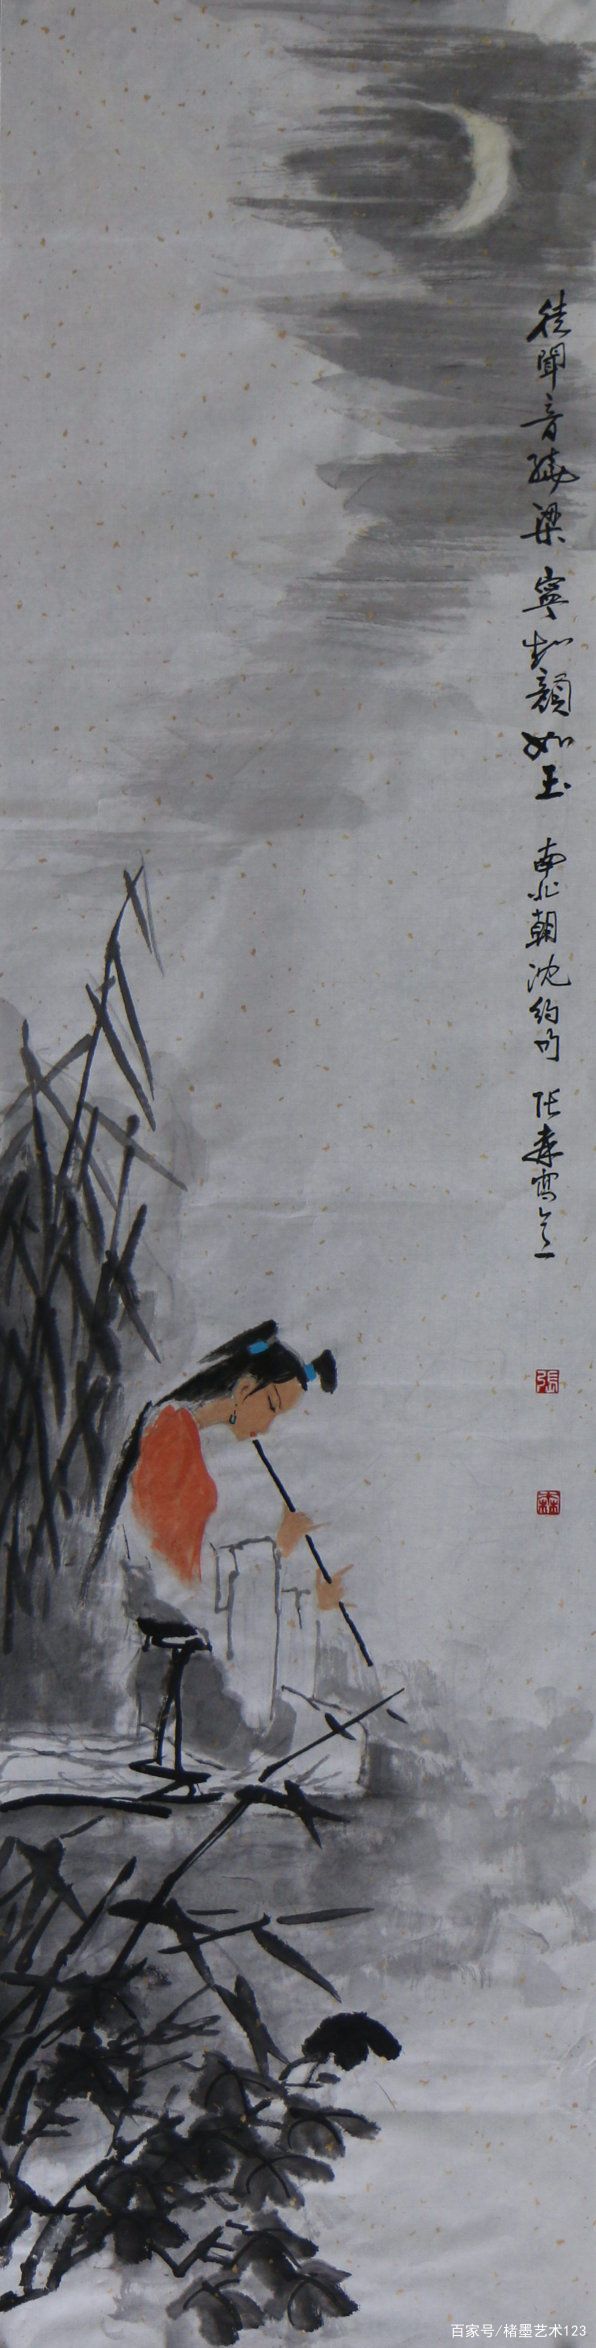 徒聞音繞梁 寧知顏如玉 南北朝沈約句 张森寫意
張
森
百家号/楮墨艺术123